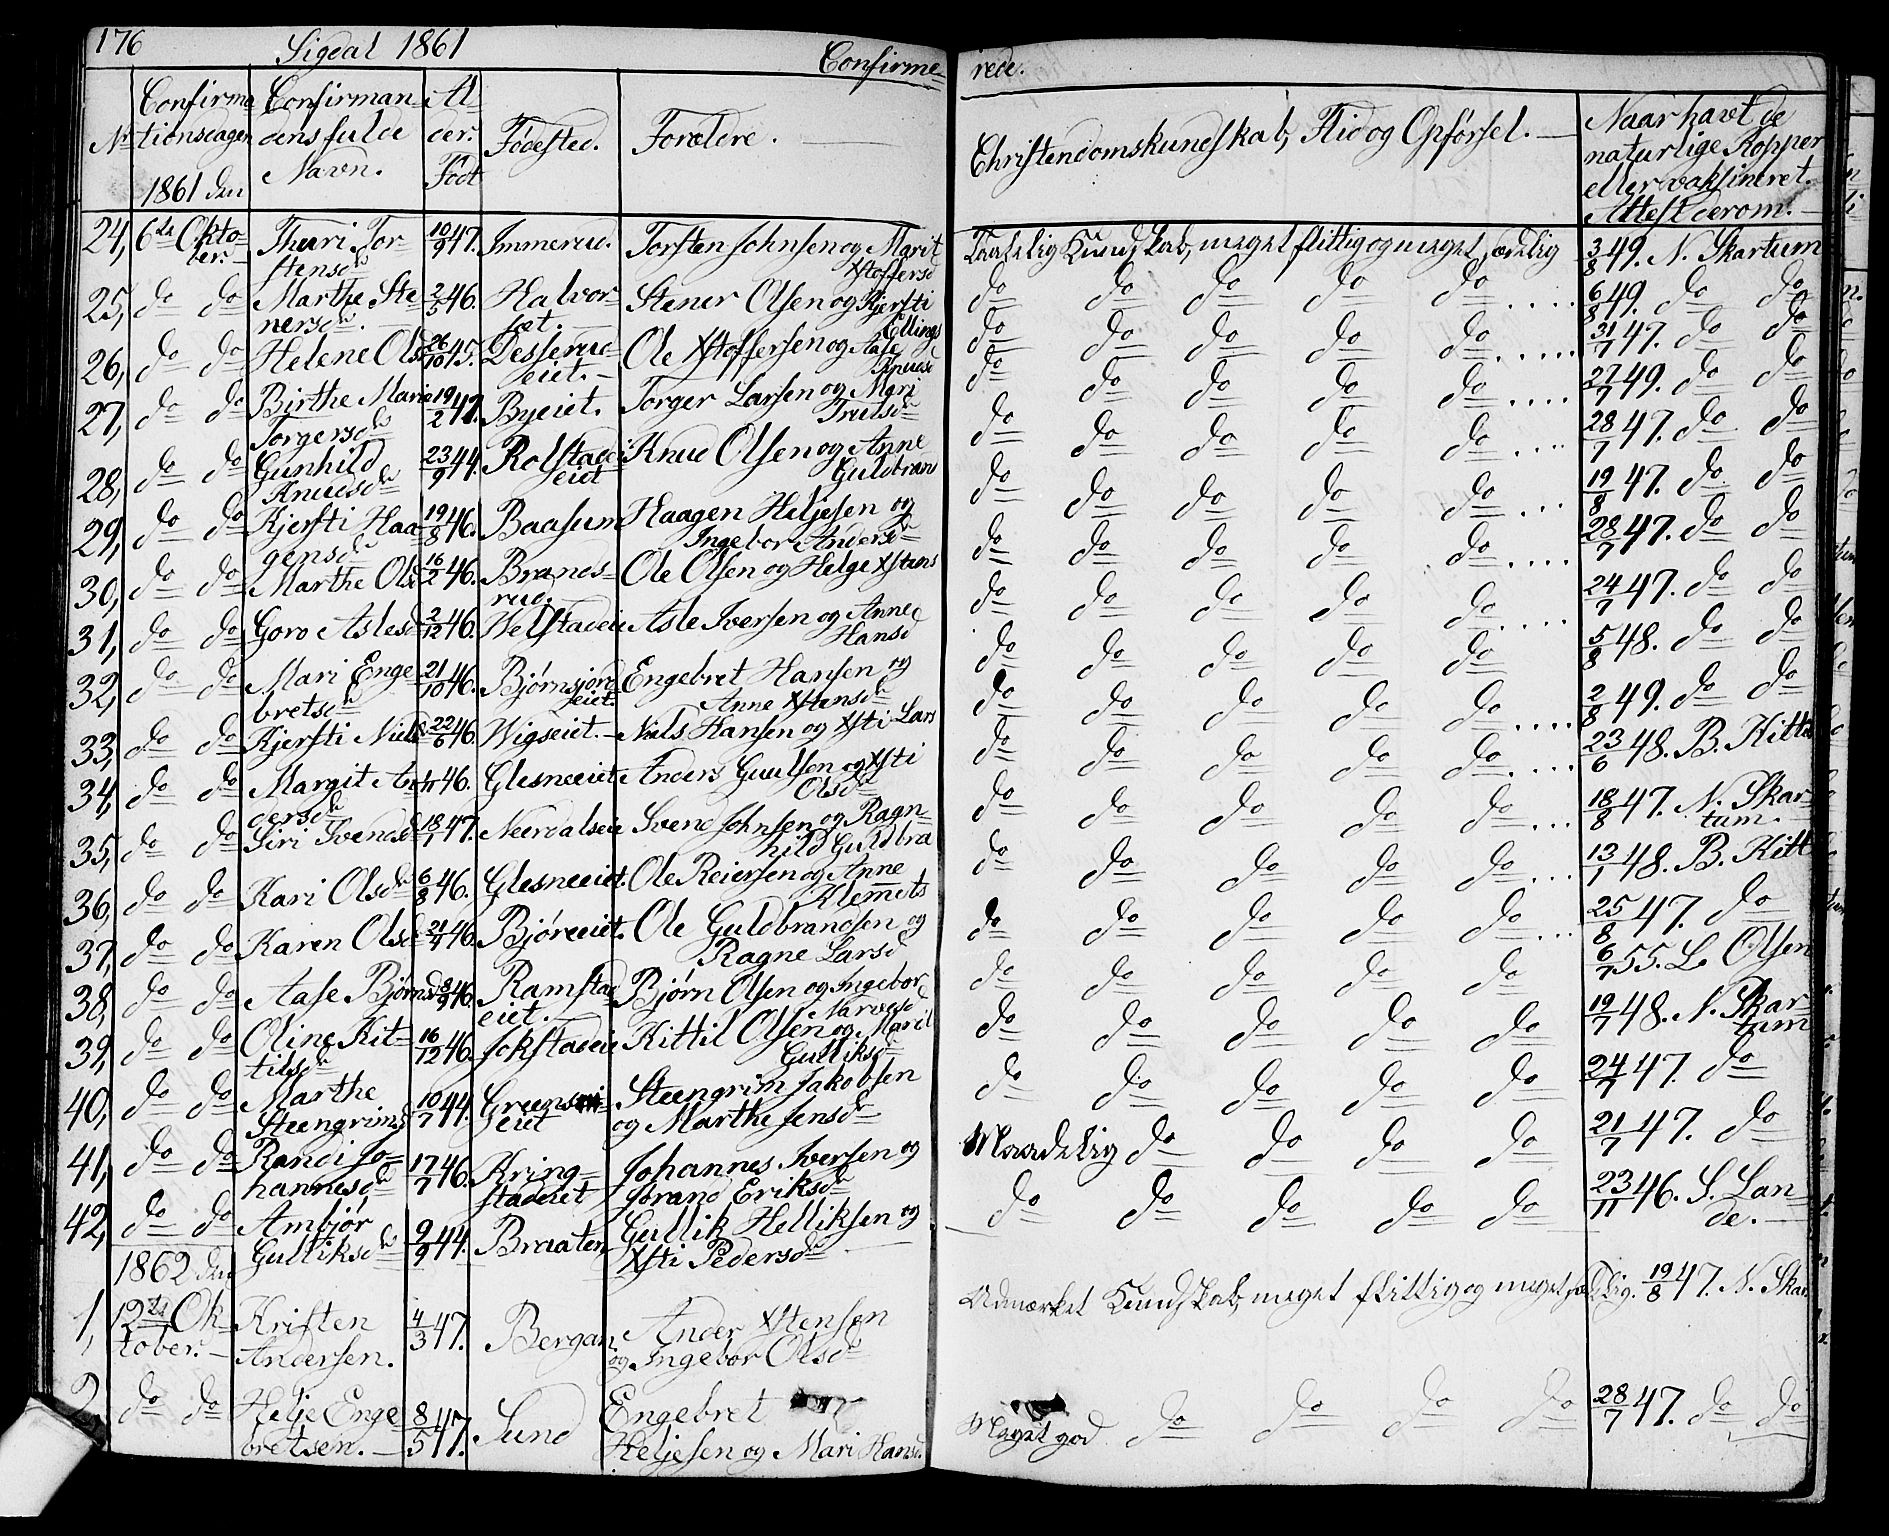 176 Sigdal 1861 Confirme- rede.
Nr Confirmationsdagen 1861 den Confirmandens fulde Navn. Alder. Født Fødested. Forældre. Christendomskundskab, Flid og Opførsel. Naar havt de naturlige Kopper eller vaksineret. Attest derom.
24, 6te Oktober. Thuri Torstensd 10/9 47. Immerud. Torsten Johnsen og Marit Xstoffersd Taalelig Kundskab, meget flittig og meget sædelig 3/8 49. N. Skartum
25, do do Marthe Stenersd. 2/5 46. Halvorset. Stener Olsen og Kjersti Ellings do do do do do 6/8 49. do do
26, do do Helene Ols 26/10 45. Desserudeiet. Ole Xstoffersen og Aase Knudsd do do do do do 31/7 47. do do
27, do do Birthe Marie Torgersd 19/2 47. Byeiet. Torger Larsen og Mari Truelsd do do do do do 27/7 49. do do
28, do do Gunhild Knudsd 23/9 44. Rolstadeiet Knud Olsen og Anne Guldbrand do do do do do 28/7 47. do do
29, do do Kjersti Haagensd 19/8 46. Baasum Haagen Heljesen og Ingebor Andersd do do do do do 19/8 47. do do
30, do do Marthe Ols 16/2 46. Brænesrud. Ole Olsen og Helge Xstens do do do do do 28/7 47. do do
31, do do Goro Aslesd 2/12 46. Velstadeie Asle Iversen og Anne Hansd do do do do do 24/7 47. do do
32, do do Mari Engebretsd 21/10 46. Bjørnsjordeiet Engebret Hansen og Anne Xstensd do do do do do 5/8 48. do do
33, do do Kjersti Niels 22/6 46. Vigseiet. Niels Hansen og Xsti Lars do do do do do 2/8 49. do do
34, do do Margit Andersd 46. Glesneeiet Anders Guulsen og Xsti Olsd do do do do do 23/6 48. B. Kitt
35, do do Siri Svendsd 18/1 47. Neerdalseie Svend Johnsen og Ragnhild Guldbra do do do do do 18/8 47. N. Skartum.
36, do do Kari Olsd 6/8 46. Glesneeiet. Ole Reiersen og Anne Klemmets do do do do do 13/1 48. B. Kitt
37, do do Karen Olsd 21/4 46. Bjøreeiet. Ole Guldbrandsen og Ragne Larsd do do do do do 25/8 47. do
38, do do Aase Bjørnsd 8/9 46. Ramstadeiet. Bjørn Olsen og Ingebor Narvesd do do do do do 6/7 55. L. Olsen
39, do do Oline Kittilsd 16/12 46. Jokstadeie Kittil Olsen og Marit Gulliksd do do do do do 19/7 48. N. Skartum
40, do do Marthe Steengrims 10/7 44. eiet Steengrim Jakobsen og Marthe Jensd do do do do do 24/7 47. do
41, do do Randi Johannesd 17/7 46. Kringstadeiet Johannes Iversen og Jorand Eriksd Maadelig do do do do 21/7 47. do
42, do do Ambjør Gulliksd 9/9 44. Braaten Gullik Helliksen og Xsti Pedersd do do do do do 23/11 46. S. Lande.
1862 den
1, 12te Oktober. Kristen Andersen. 4/3 47. Bergan Ander Xstensen og Ingebor Olsd Udmærket Kundskab, meget flittig og meget sædelig. 19/8 47. N. Skar
2 do do Helje Engebretsen. 8/5 47. Sund Engebret Heljesen og Mari Hansd. Meget god do do do do 28/7 47. do do